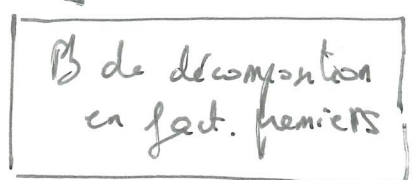 Pb de décomposition
en fact. premiers